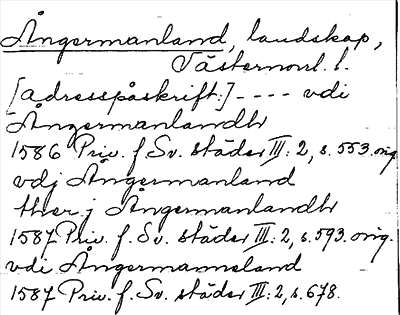 Ångermanland, landskap,
Västernorrl. l.
[adresspåskrift:] ---- vdi
Ångermanlandh
1586 Priv. f. Sv. städer III: 2, s. 553. orig.
vdj Ångermanland
ther j Ångermanlandh
1587 Priv. f. Sv. städer III: 2, s. 593. orig.
vdi Ångermanneland
1587 Priv. f. Sv. städer III: 2, s. 678.